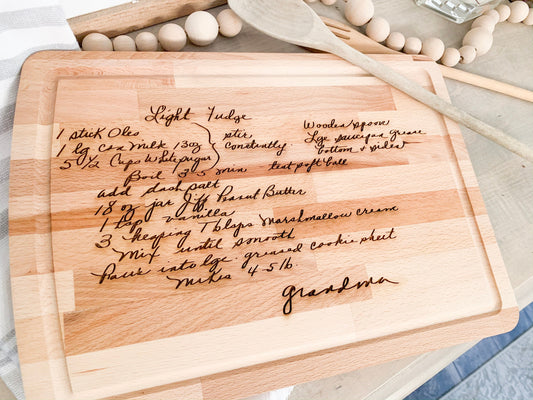 Light Fudge
1 stick Oleo
1 lg can milk 13oz
5 1/2 Cups White sugar
stir
constantly
Wooden spoon
Lge saucepan grease
bottom & sides
Boil 3-5 min test soft ball
add dash salt
18 oz jar Jiff Peanut Butter
1 tsp vanilla
3 heaping Tblsps Marshmallow cream
Mix until smooth
Pour into lge. greased cookie sheet
Makes 4-5 lb.
Grandma